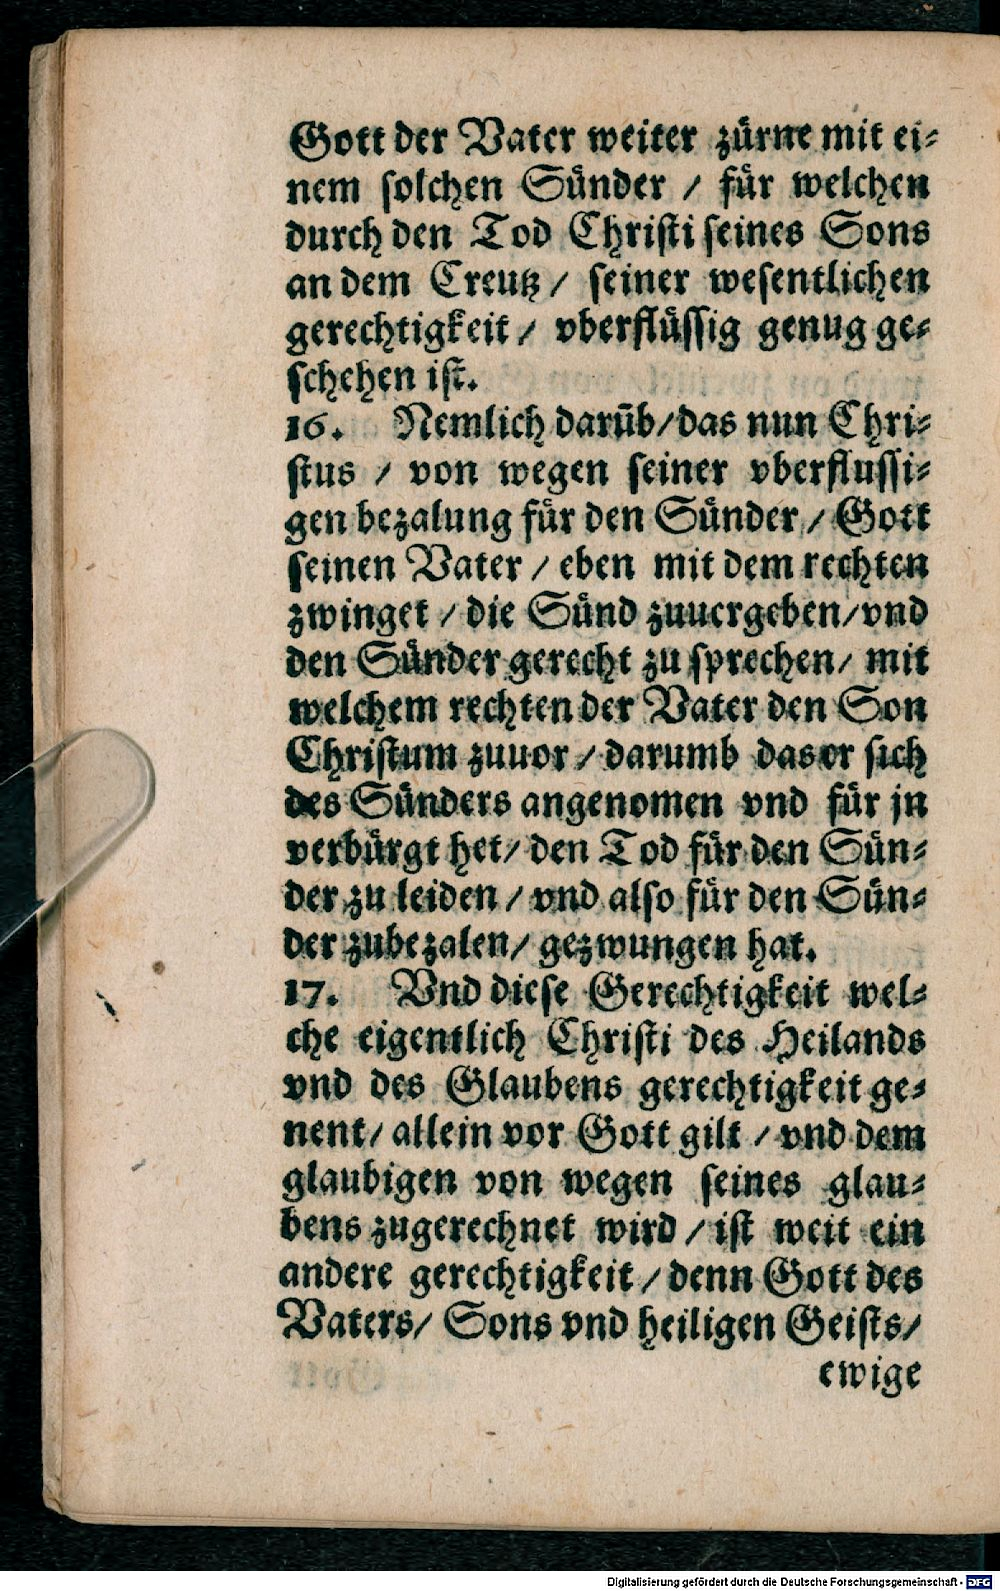 Gott der Vater weiter zürne mit ei⸗
nem solchen Sünder / für welchen
durch den Tod Christi seines Sons
an dem Creutz / seiner wesentlichen
gerechtigkeit / vberflüssig genug ge⸗
schehen ist.
16. Nemlich darüb / das nun Chri⸗
stus / von wegen seiner vberflussi⸗
gen bezalung für den Sünder / Gott
seinen Vater / eben mit dem rechten
zwinget / die Sünd zuuergeben / vnd
den Sünder gerecht zu sprechen / mit
welchem rechten der Vater den Son
Christum zuuor / darumb das er sich
des Sünders angenomen vnd für jn
verbürgt het / den Tod für den Sün⸗
der zu leiden / vnd also für den Sün⸗
der zubezalen / gezwungen hat.
17. Vnd diese Gerechtigkeit wel⸗
che eigentlich Christi des Heilands
vnd des Glaubens gerechtigkeit ge⸗
nent / allein vor Gott gilt / vnd dem
glaubigen von wegen seines glau⸗
bens zugerechnet wird / ist weit ein
andere gerechtigkeit / denn Gott des
Vaters / Sons vnd heiligen Geists /
ewige
Digitalisierung gefördert durch die Deutsche Forschungsgemeinschaft - DFG